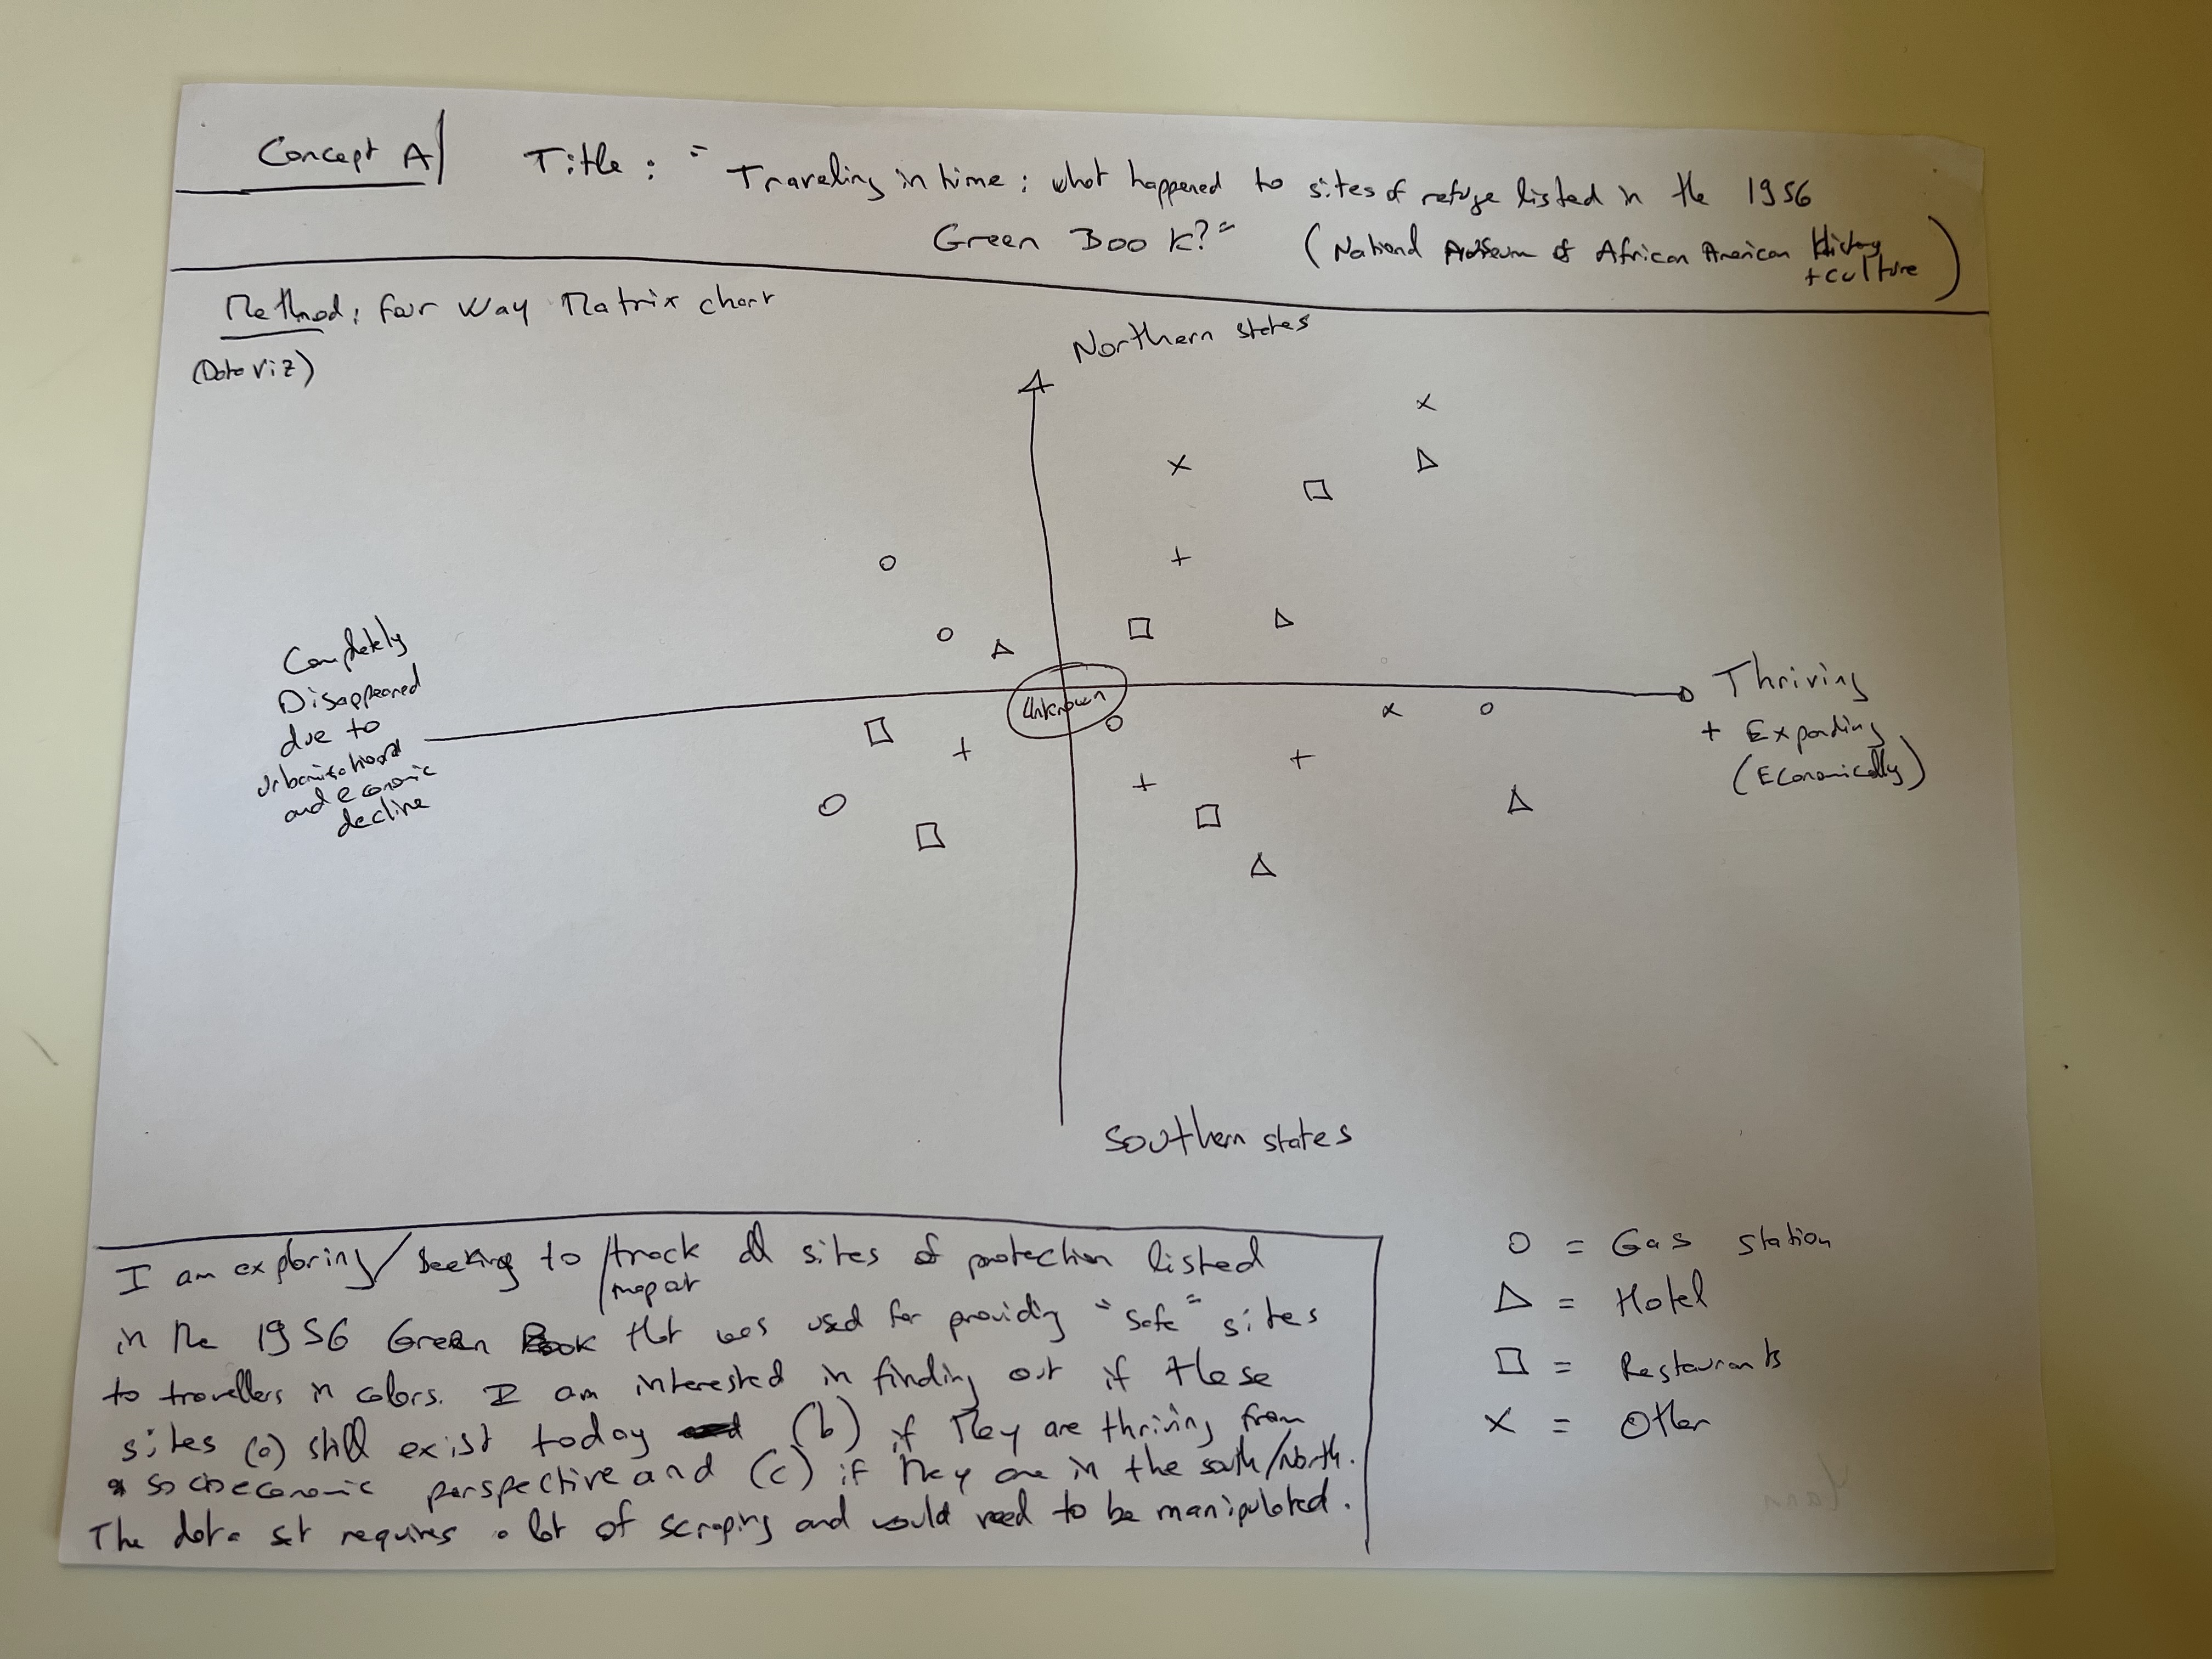 Concept A
Title : " Traveling in time : what happened to sites of refuge listed in the 1956
Green Book? " (National Museum of African American History
+ culture)
Method : four way Matrix chart
(Data viz)
Northern states
Completely
Disappeared
due to
urbanisation
and economic
decline
Unknown
Thriving
+ Expanding
(Economically)
Southern states
I am exploring / seeking to / track all sites of protection listed
/ map out
in the 1956 Green Book that was used for providing "safe" sites
to travellers in colors. I am interested in finding out if these
sites (a) still exist today (b) if they are thriving from
a socioeconomic perspective and (c) if they are in the south/North.
The data set requires a lot of scraping and would need to be manipulated.
O = Gas station
△ = Hotel
□ = Restaurants
X = Other